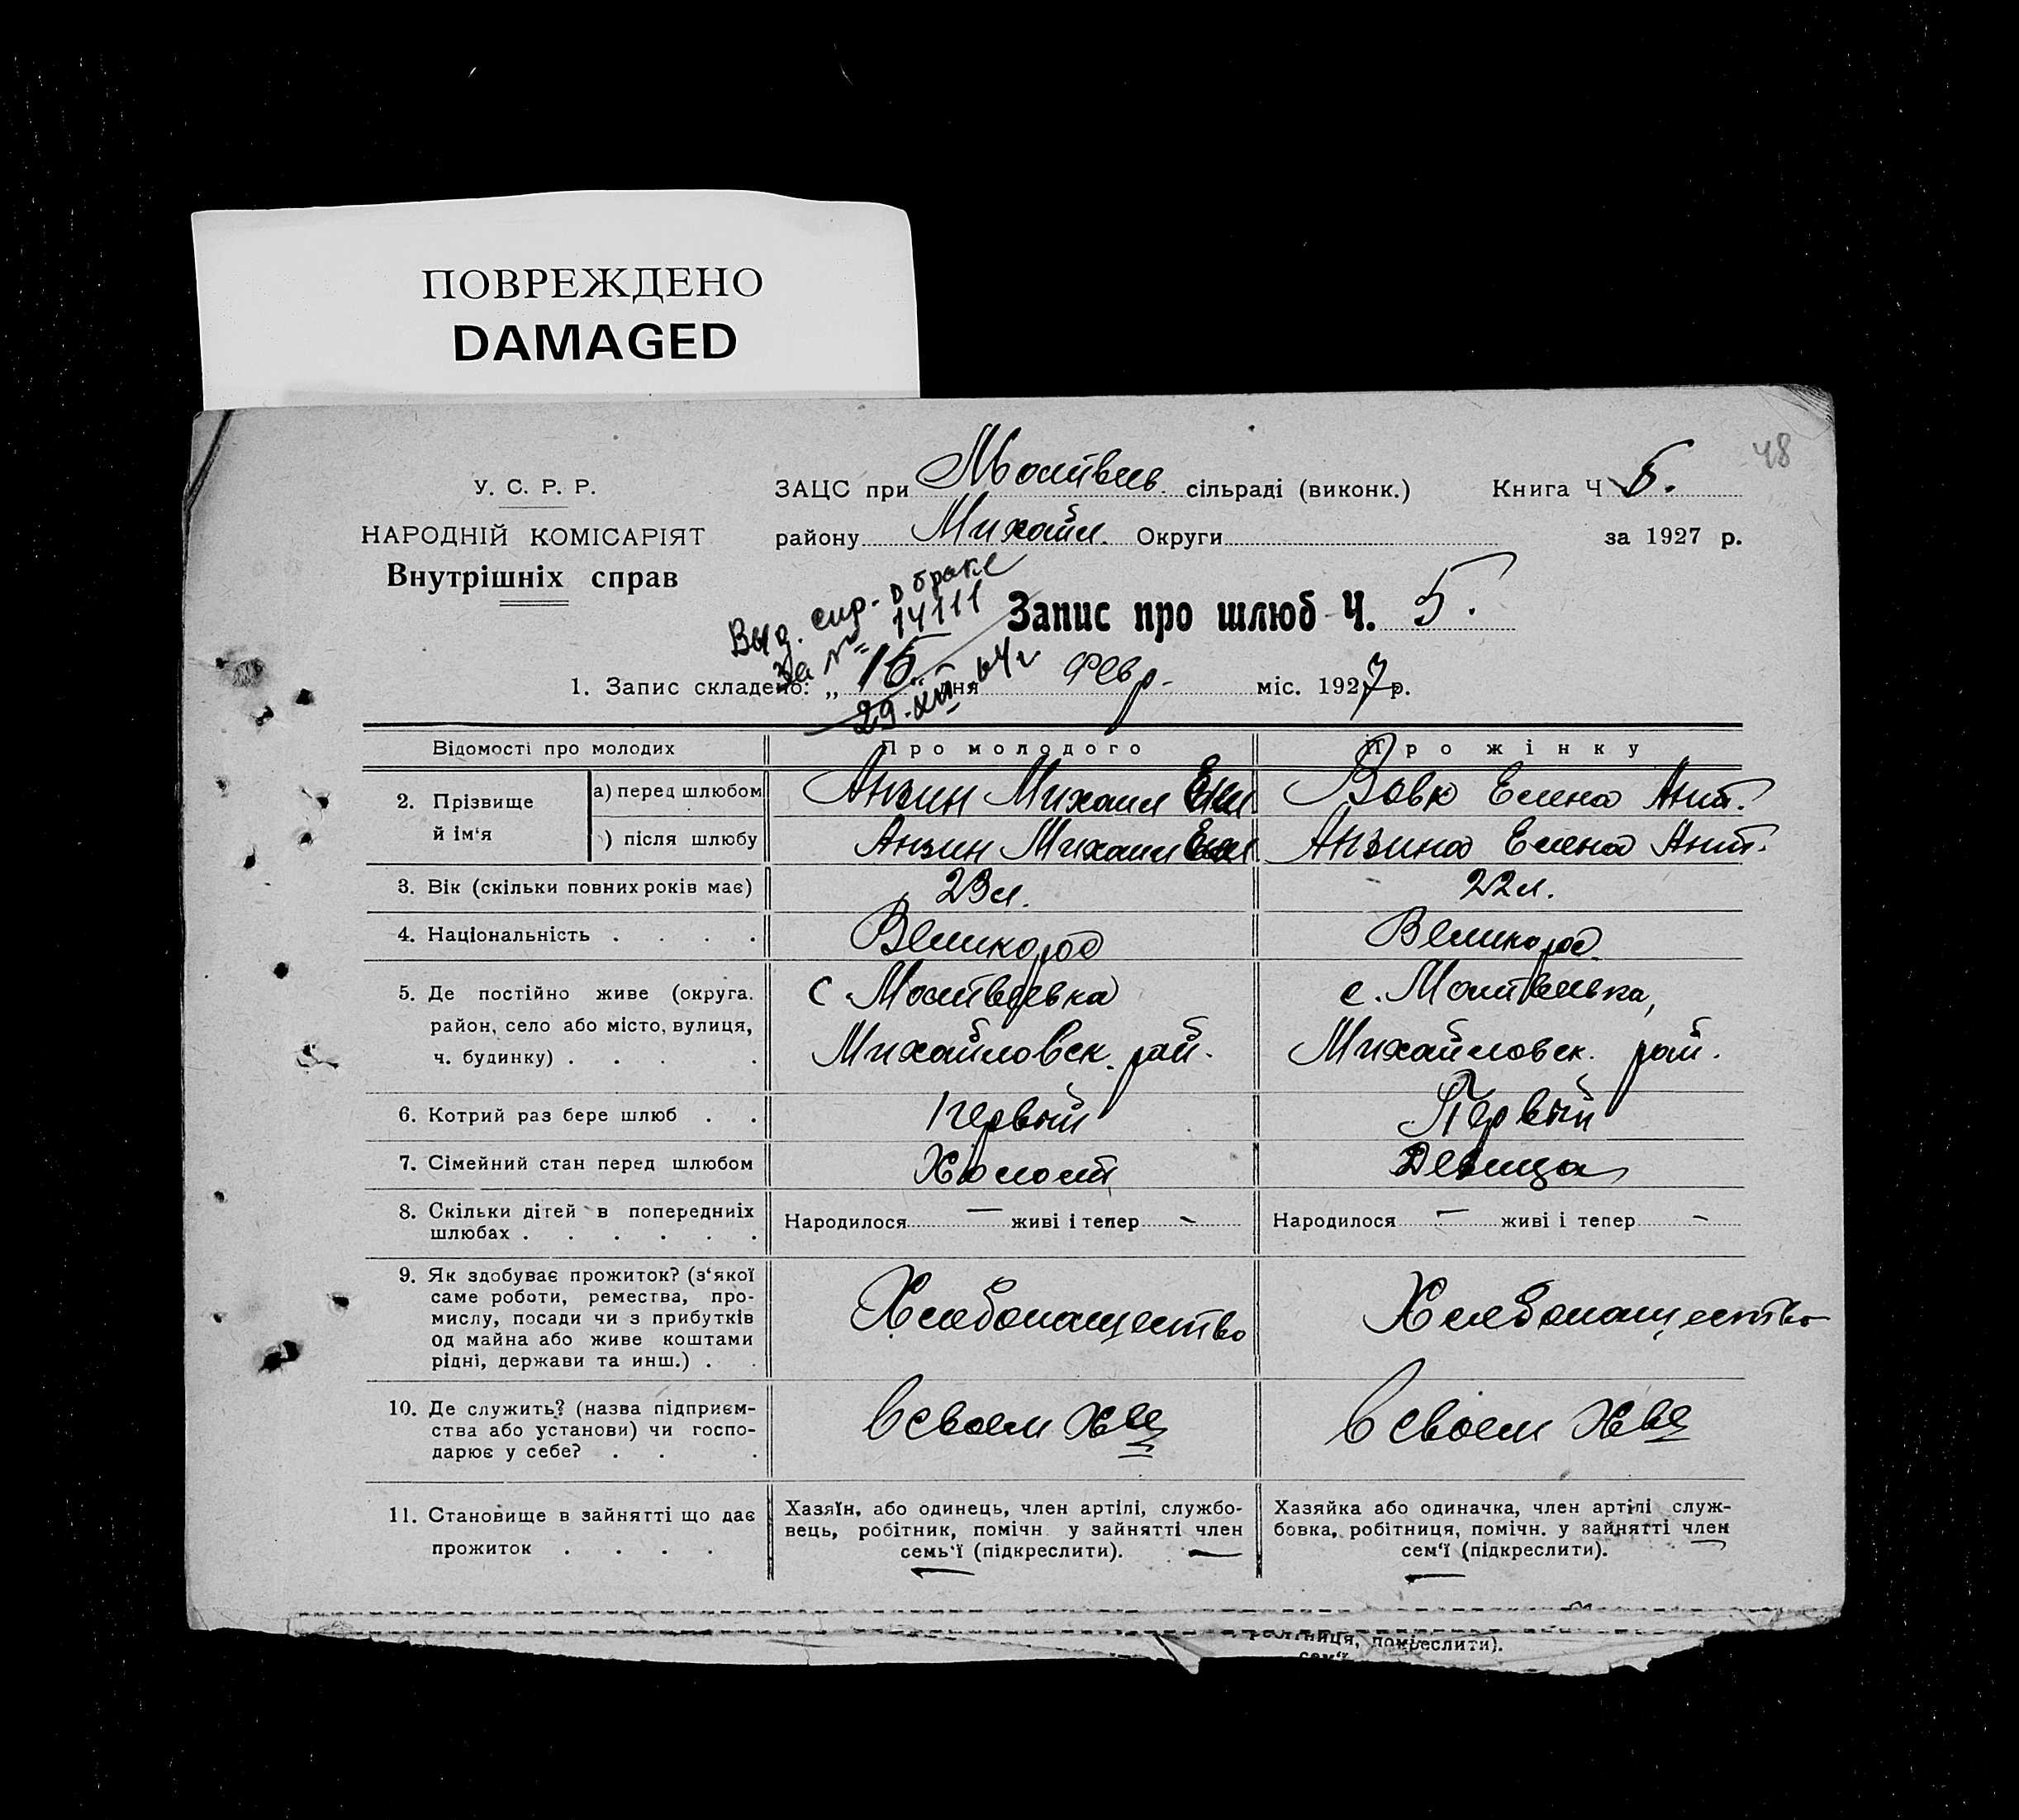 ПОВРЕЖДЕНО
DAMAGED
48
У. С. Р. Р.
НАРОДНІЙ КОМІСАРІЯТ
Внутрішніх справ
ЗАЦС при Матвеев. сільраді (виконк.)
Книга Ч 5.
району Михайл. Округи
за 1927 р.
Выд. спр. о браке
за № 14111
29.XII 64 г
Запис про шлюб Ч. 5.
1. Запис складено: „15“ дня Февр. міс. 1927 р.
Відомості про молодих
Про молодого
Про жінку
2. Прізвище й ім‘я
а) перед шлюбом
Анзин Михаил
Вовк Елена Ант.
) після шлюбу
Анзин Михаил
Анзина Елена Ант.
3. Вік (скільки повних років має)
23 л.
22 л.
4. Національність . . . .
Великорос
Великорос
5. Де постійно живе (округа.
район, село або місто, вулиця,
ч. будинку) . . . .
с. Матвеевка
Михайловск. рай.
с. Матвеевка,
Михайловск. рай.
6. Котрий раз бере шлюб . .
Первый
Первый
7. Сімейний стан перед шлюбом
Холост
Девица
8. Скільки дітей в попередниіх
шлюбах . . . . . .
Народилося — живі і тепер -
Народилося — живі і тепер -
9. Як здобуває прожиток? (з‘якої
саме роботи, ремества, про-
мислу, посади чи з прибутків
од майна або живе коштами
рідні, держави та инш.) . .
Хлебопашество
Хлебопашество
10. Де служить? (назва підприєм-
ства або установи) чи госпо-
дарює у себе? . . .
в своем хве
в своем хве
11. Становище в зайнятті що дає
прожиток . . . .
Хазяїн, або одинець, член артілі, службо-
вець, робітник, помічн у зайнятті член
семь‘ї (підкреслити).
Хазяйка або одиначка, член артілі служ-
бовка, робітниця, помічн. у зайнятті член
сем‘ї (підкреслити).